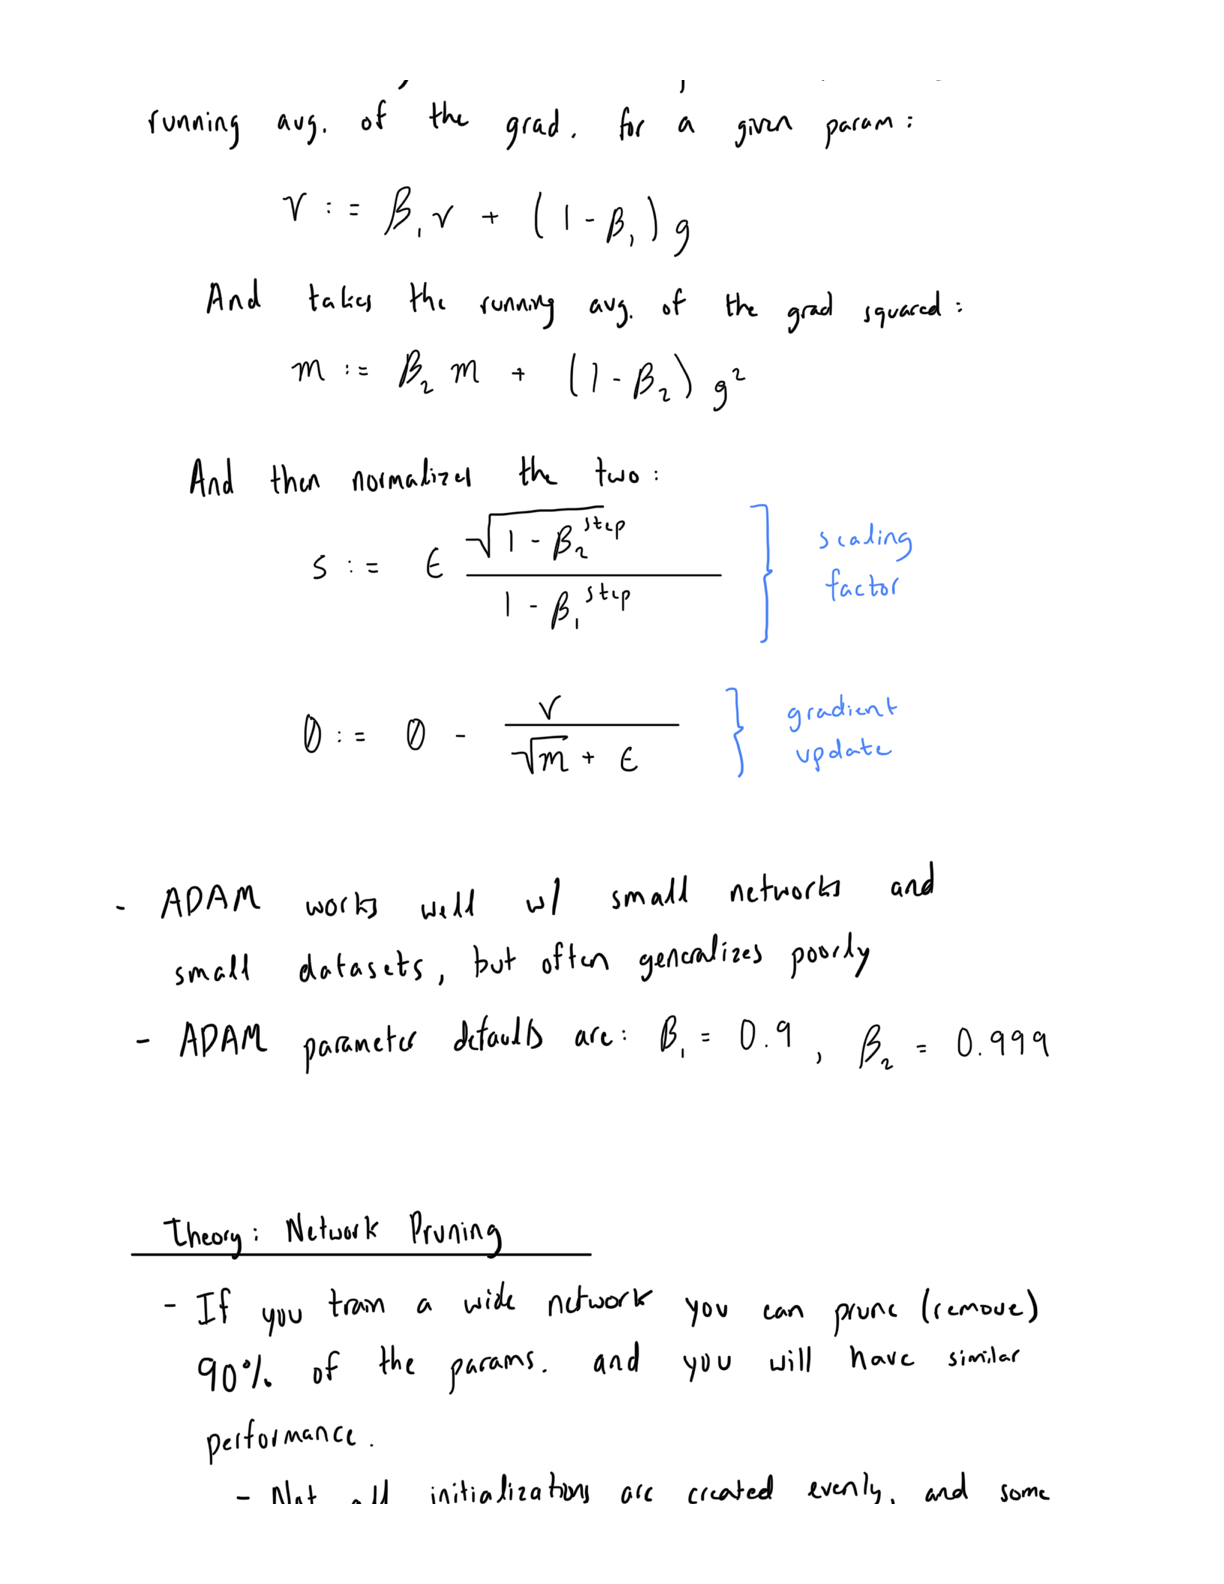 running avg. of the grad. for a given param:
v := β₁v + (1-β₁) g
And takes the running avg. of the grad squared:
m := β₂ m + (1-β₂) g²
And then normalizes the two:
s := ϵ √(1-β₂^step) / (1-β₁^step) } scaling factor
θ := θ - v / (√m + ϵ) } gradient update
- ADAM works well w/ small networks and
small datasets, but often generalizes poorly
- ADAM parameter defaults are: β₁ = 0.9, β₂ = 0.999
Theory: Network Pruning
- If you train a wide network you can prune (remove)
90% of the params. and you will have similar
performance.
- Not all initializations are created evenly, and some